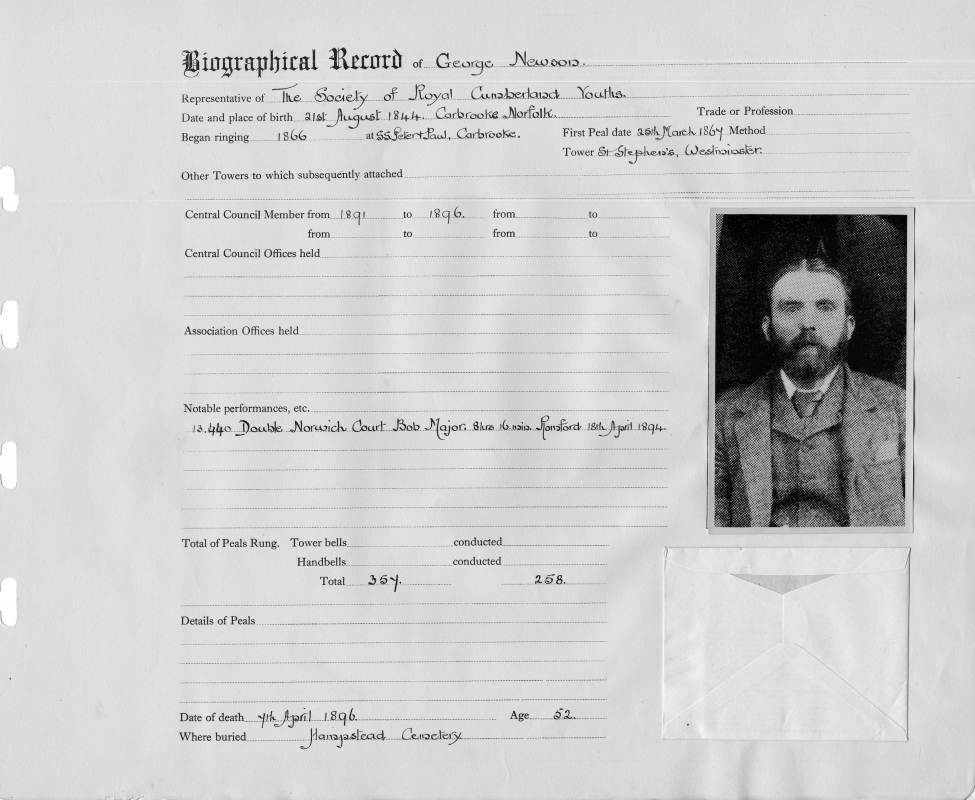 Biographical Record of George Newson.
Representative of The Society of Royal Cumberland Youths.
Date and place of birth 21st August 1844. Carbrooke Norfolk. Trade or Profession
Began ringing 1866 at SS Peter & Paul, Carbrooke. First Peal date 25th March 1867 Method
Tower St Stephen's, Westminster.
Other Towers to which subsequently attached
Central Council Member from 1891 to 1896. from to
from to from to
Central Council Offices held
Association Offices held
Notable performances, etc.
13,440 Double Norwich Court Bob Major. 8hrs 16 mins. 18th April 1894
Total of Peals Rung. Tower bells conducted
Handbells conducted
Total 357. 258.
Details of Peals
Date of death 7th April 1896. Age 52.
Where buried Hampstead Cemetery